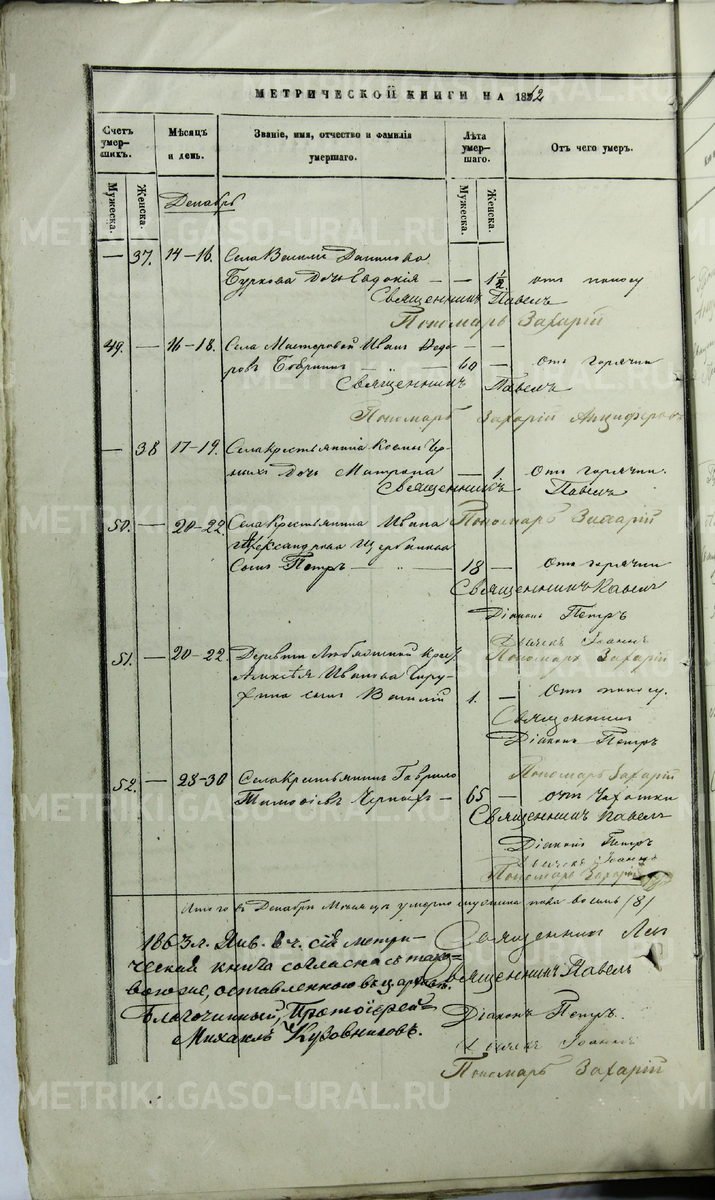 МЕТРИЧЕСКОЙ КНИГИ НА 1862
Счетъ умершихъ.
Мужеска.
Женска.
Мѣсяцъ и день.
Званіе, имя, отчество и фамилія умершаго.
Лѣта умершаго.
Мужеска.
Женска.
Отъ чего умеръ.
Декабрь
— 37. 14–16. Села Василія Данилова
Буркова дочь Евдокія — — 1½ отъ поносу
Священникъ Павелъ
Пономарь Захарій
49. — 16–18. Села Мастеровой Иванъ Ѳедо-
ровъ Бобринъ — 60 — Отъ горячки
Священникъ Павелъ
Пономарь Захарій Анциферовъ
— 38 17–19. Села крестьянина Козмы Чер-
ныхъ дочь Матрона — 1. Отъ горячки.
Священникъ Павелъ
Пономарь Захарій
50. — 20–22. Села крестьянина Ивана
Александрова Щербакова
Сынъ Петръ — 18 — Отъ горячки
Священникъ Павелъ
Діаконъ Петръ
Дьячекъ Іоаннъ
Пономарь Захарій
51. — 20–22. Деревни крест.
Никиты Иванова
сынъ Василій 1. — Отъ поносу.
Священникъ
Діаконъ Петръ
Пономарь Захарій
52. — 28–30 Села Крестьянинъ Гаврило
Тимофіевъ Черныхъ — 65 — отъ чахотки
Священникъ Павелъ
Діаконъ Петръ
Дьячекъ Іоаннъ
Пономарь Захарій
Итого въ Декабрѣ Месяцѣ умерло мужеска пола восемь (8)
1863 г. Янв. 8 ч. сія метри-
ческая книга согласна съ тако-
вою же, оставленною въ церкви.
Благочинный, Протоіерей
Михаилъ Кузовниковъ.
Священникъ Лев
Священникъ Павелъ
Діаконъ Петръ.
Дьячекъ Іоаннъ
Пономарь Захарій
METRIKI.GASO-URAL.RU